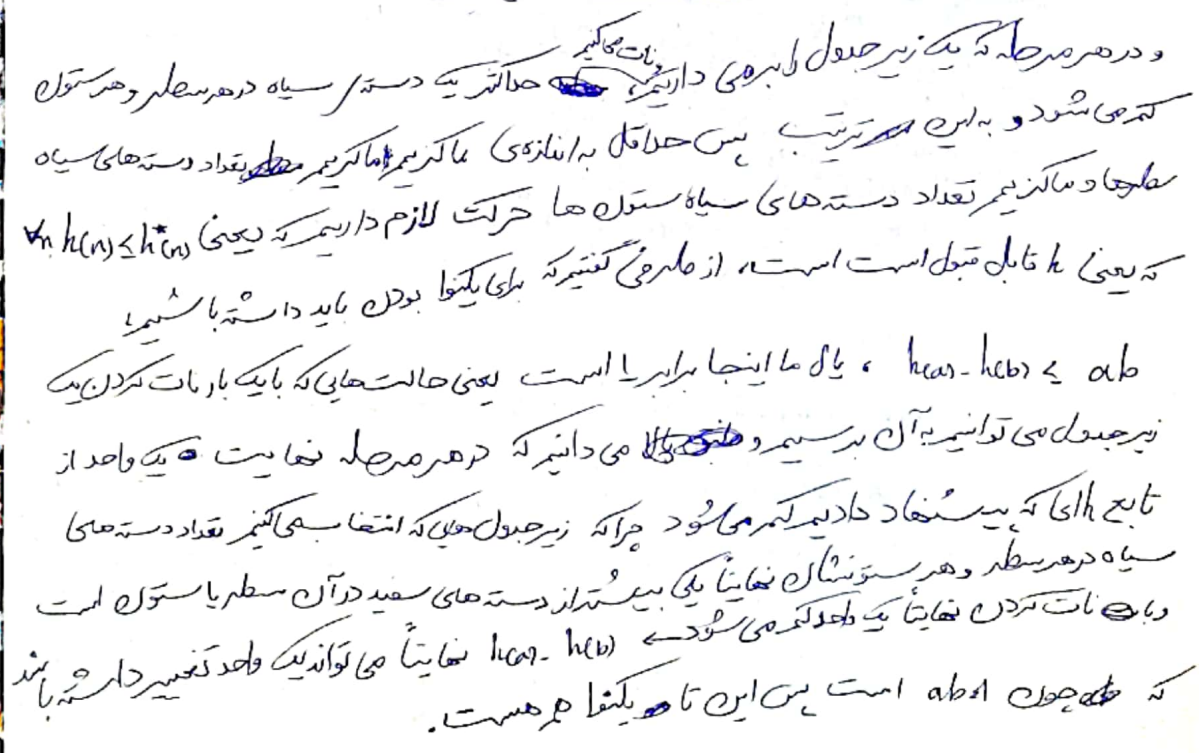 و در هر مرحله که یک زیر جدول را بر می داریم و نات می کنیم حداکثر یک دسته ی سیاه در هر سطر و هر ستون
کم می شود و به این ترتیب پس حداقل به اندازه ی ماکزیمم ماکزیمم تعداد دسته های سیاه
سطرها و ماکزیمم تعداد دسته های سیاه ستون ها حرکت لازم داریم که یعنی ∀n h(n) ≤ h*(n)
که یعنی h قابل قبول است است، از طرفی گفتیم که برای یکنوا بودن باید داشته باشیم:
h(a) - h(b) ≤ ab ، یال ما اینجا برابر با است یعنی حالت هایی که با یک بار نات کردن یک
زیر جدول می توانیم به آن برسیم و می دانیم که در هر مرحله نهایت یک واحد از
تابع h ای که پیشنهاد دادیم کم می شود چرا که زیر جدول هایی که انتخاب می کنیم تعداد دسته های
سیاه در هر سطر و هر ستونشان نهایتاً یکی بیشتر از دسته های سفید در آن سطر یا ستون است
و با نات کردن نهایتاً یک واحد کم می شود ← h(a) - h(b) نهایتاً می تواند یک واحد تغییر داشته باشد
که چون ab=1 است پس این تابع یکنوا هم هست.